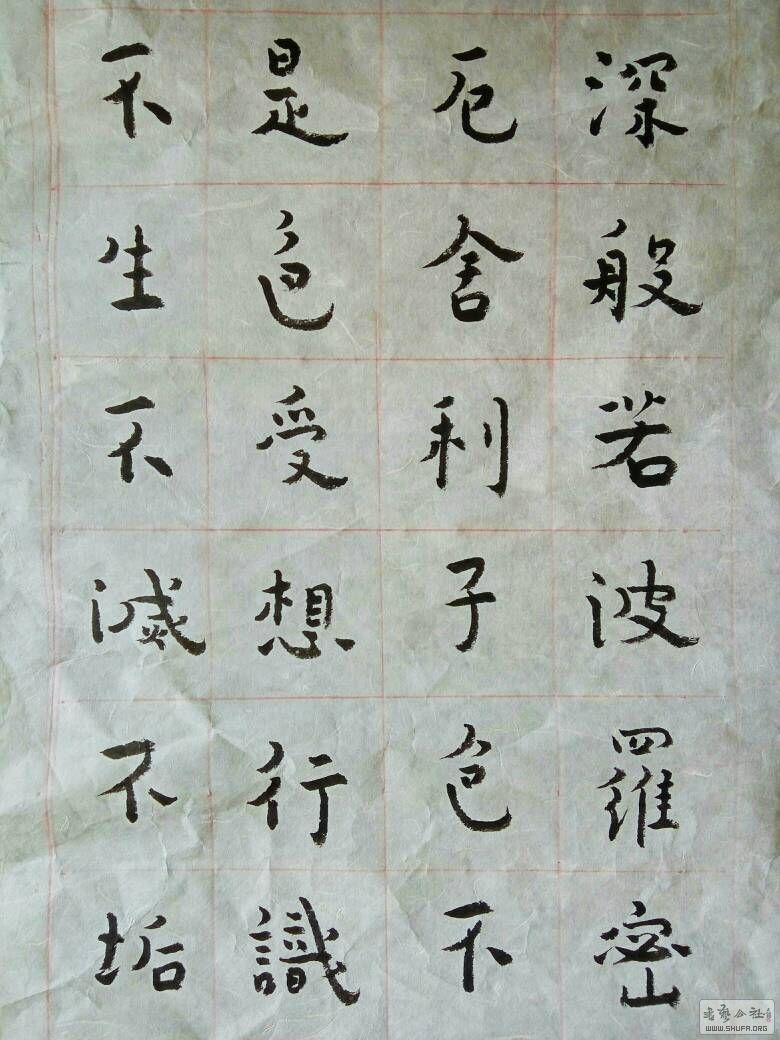 深般若波羅密
厄舍利子色不
是色受想行識
不生不滅不垢
書藝公社
WWW.SHUFA.ORG